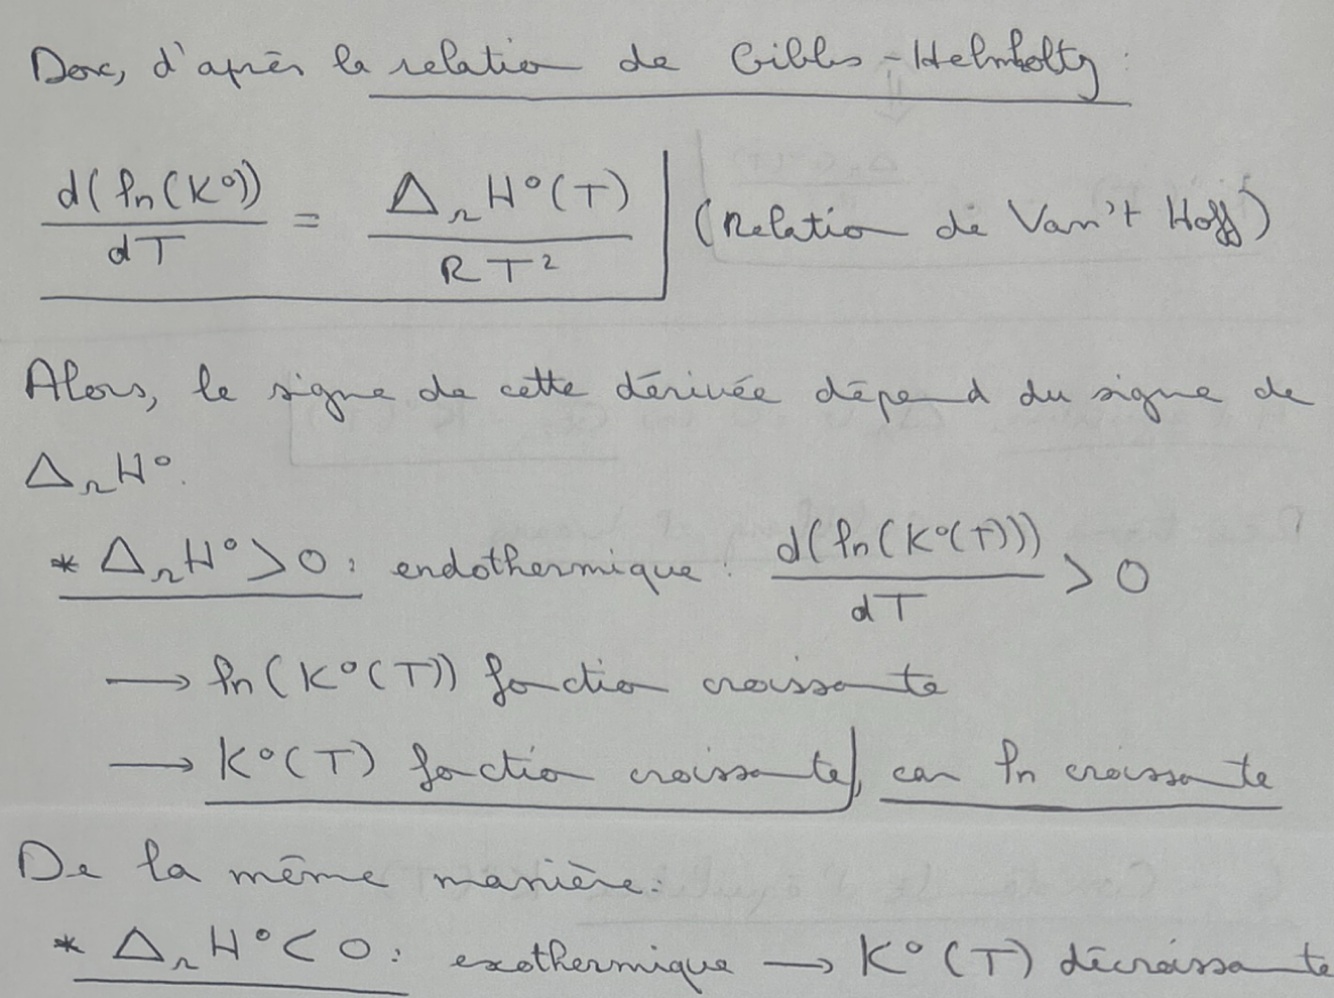 Donc, d'après la relation de Gibbs-Helmholtz :
d(ln(K°))/dT = ΔrH°(T)/RT² (Relation de Van't Hoff)
Alors, le signe de cette dérivée dépend du signe de
ΔrH°.
* ΔrH° > 0 : endothermique : d(ln(K°(T)))/dT > 0
→ ln(K°(T)) fonction croissante
→ K°(T) fonction croissante, car ln croissante
De la même manière :
* ΔrH° < 0 : exothermique → K°(T) décroissante